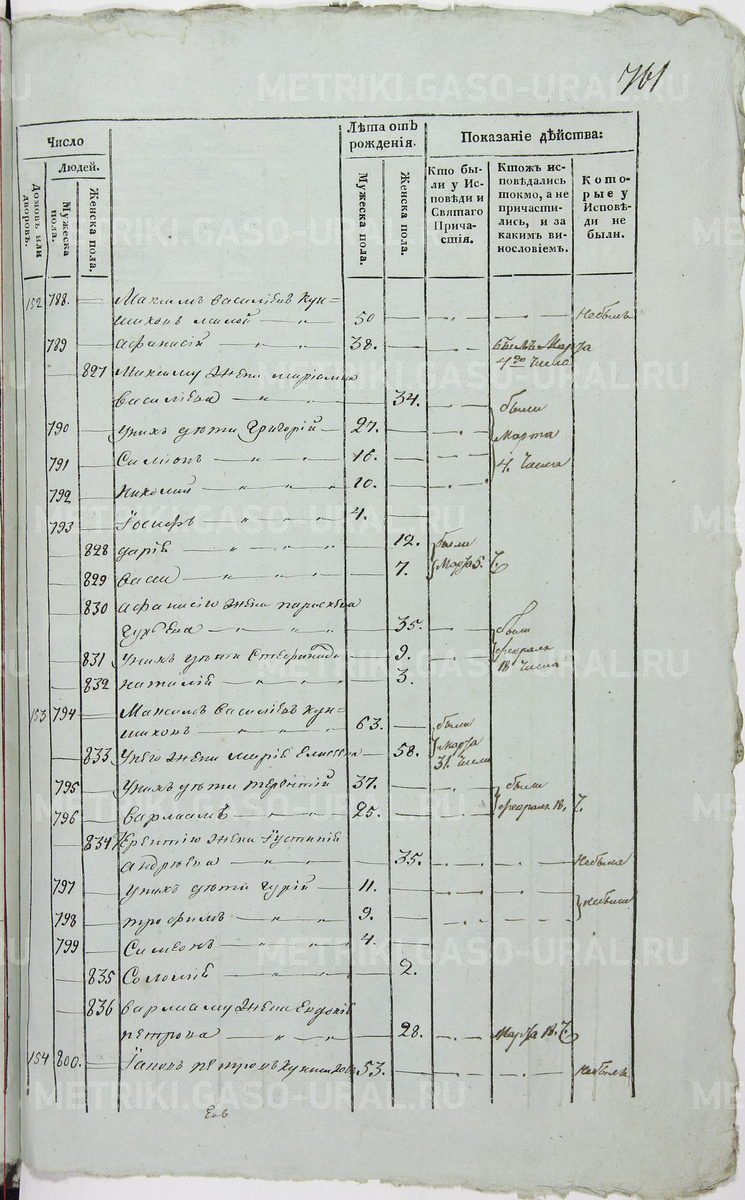 761
Число
Людей.
Домовъ или дворовъ.
Мужеска пола.
Женска пола.
Лѣта отъ рожденія.
Мужеска пола.
Женска пола.
Показаніе дѣйства:
Кто были у Исповѣди и Святаго Причастія.
Ктожъ исповѣдались токмо, а не причастились, и за какимъ винословіемъ.
Которые у Исповѣди не были.
152 788. Максимъ Василіевъ Кун-
шиковъ малой 50 Небылъ
789 Афанасій 38. былъ Марта
4го числа
827 Максиму жена Маріамна
Василіева 34. были
790 у нихъ дѣти Григорій 27. Марта
791 Симіонъ 16. 4. числа
792 Николай 10.
793 Іосифъ 4.
828 Дарія 12. были
829 Васса 7. Марта 5. Ч.
830 Афанасію жена Параскева
Гурьева 35. были
831 у нихъ дѣти 9. февраля
832 Наталія 3. 18 числа
153 794 Максимъ Василіевъ Кун-
шиковъ 63. были
833 у него жена Марія Елисеева 58. Марта
31. числа
795 у нихъ дѣти Терентій 37. были
796 Варлаамъ 25. февраля 18, Ч.
834 Терентію жена Іустинія
Андреева 35. Небыла
797 у нихъ дѣти Гурій 11. небыли
798 Трофимъ 9.
799 Симеонъ 4.
835 Соломія 2.
836 Варлааму жена Евдокія
Петрова 28. Марта 18. Ч.
154 800. Іаковъ Петровъ 53. небылъ
Eго
METRIKI.GASO-URAL.RU